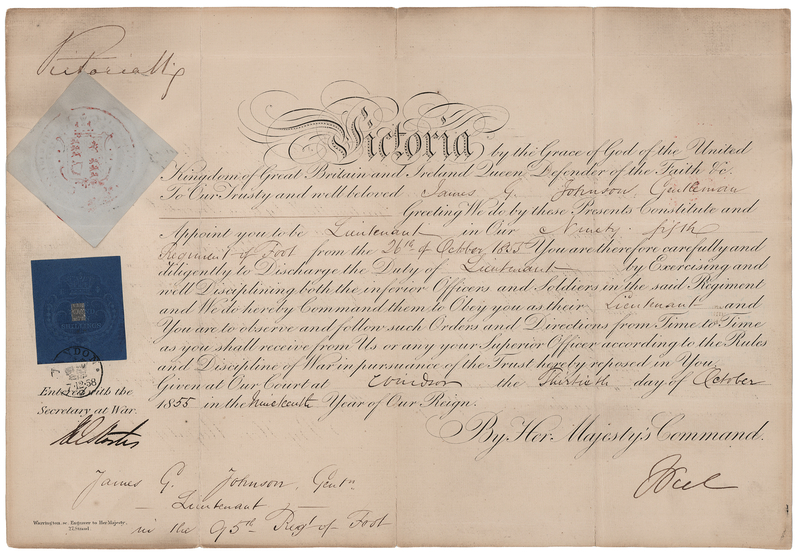 Victoria R
Victoria by the Grace of God of the United
Kingdom of Great Britain and Ireland Queen Defender of the Faith &c.
To Our Trusty and well beloved James G. Johnson, Gentleman
Greeting We do by these Presents Constitute and
Appoint you to be Lieutenant in Our Ninety-fifth
Regiment of Foot from the 26th of October 1855 You are therefore carefully and
diligently to Discharge the Duty of Lieutenant by Exercising and
well Disciplining both the inferior Officers and Soldiers in the said Regiment
and We do hereby Command them to Obey you as their Lieutenant and
You are to observe and follow such Orders and Directions from Time to Time
as you shall receive from Us or any your Superior Officer according to the Rules
and Discipline of War in pursuance of the Trust hereby reposed in You
Given at Our Court at Windsor the Thirtieth day of October
1855 in the Nineteenth Year of Our Reign.
By Her Majesty's Command.
Entered with the
Secretary at War.
James G. Johnson, Gentn
Lieutenant
in the 95th Regt of Foot
Warrington sc. Engraver to Her Majesty,